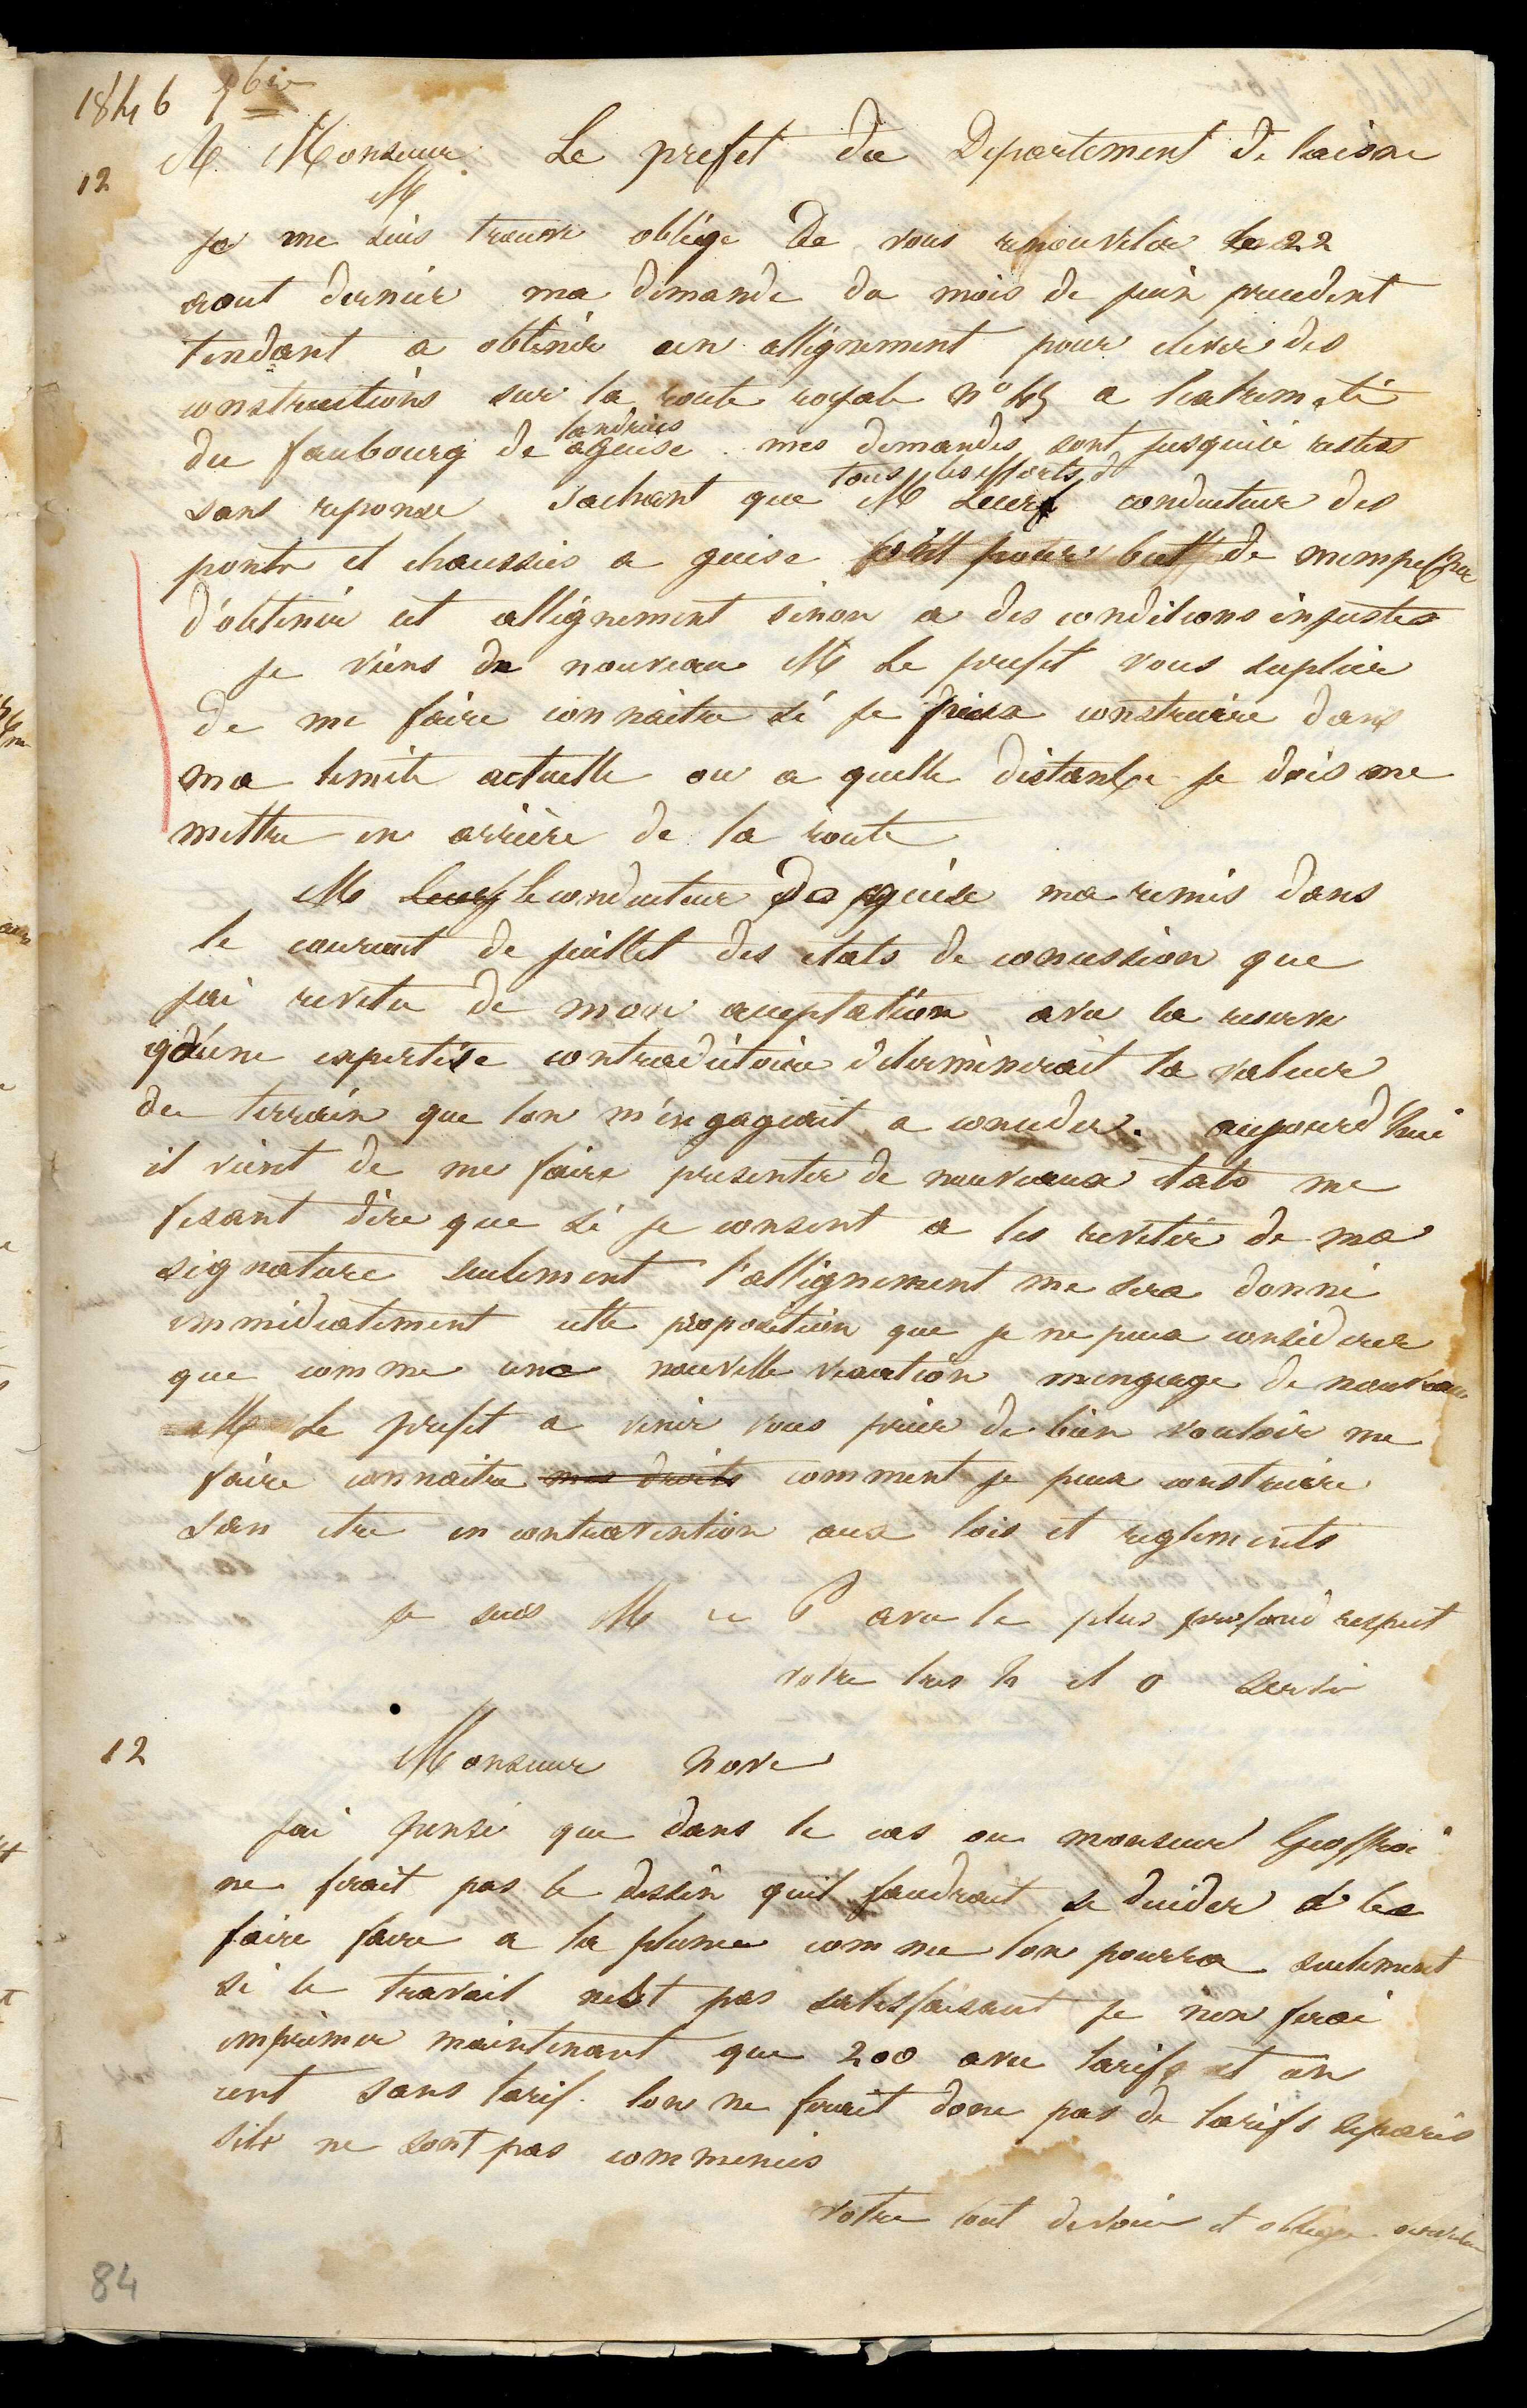 1846 7bre
12 M. Monsieur Le prefet du Departement de laisne
M
Je me suis trouvé obligé de vous renouveler le 22
aout dernier ma demande du mois de juin precedent
tendant a obtenir un allignement pour elever des
constructions sur la route royale n° 45 a lextremité
du faubourg de landrecies a guise . mes demandes sont jusquici restées
sans reponse sachant que tous les efforts de M Lecerf conducteur des
ponts et chaussées a guise ont pour but de mempecher
d'obtenir cet allignement sinon a des conditions injustes
je viens de nouveau M Le prefet vous suplier
de me faire connaitre si je puis construire dans
ma limite actuelle ou a quelle distance je dois me
mettre en arrière de la route
M Lecerf le conducteur de guise ma remis dans
le courant de juillet des etats de concession que
jai revetu de mon acceptation avec la reserve
qu'une expertise contradictoire determinerait la valeur
du terrain que lon m'engageait a conceder . aujourd'hui
il vient de me faire presenter de nouveaux etats me
fesant dire que si je consent a les revetir de ma
signature seulement l'allignement me sera donné
immediatement cette proposition que je ne peux considerer
que comme une nouvelle vexation mengage de nouveau
M Le prefet a venir vous prier de bien vouloir me
faire connaitre mes droits comment je peux construire
san etre en contravention aux lois et reglements
je suis M le P avec le plus profond respect
votre tres h et o servi
12 Monsieur nove
jai pensé que dans le cas ou monsieur Geoffroi
ne ferait pas le dessin quil faudrait se decider a le
faire faire a la plume comme lon pourra seulement
si le travail nest pas satisfaisant je nen ferai
imprimer maintenant que 200 avec tarifs et un
cent sans tarif . lon ne ferait donc pas de tarifs separés
sils ne sont pas commencés
votre tout devoué et obligé serviteur
84